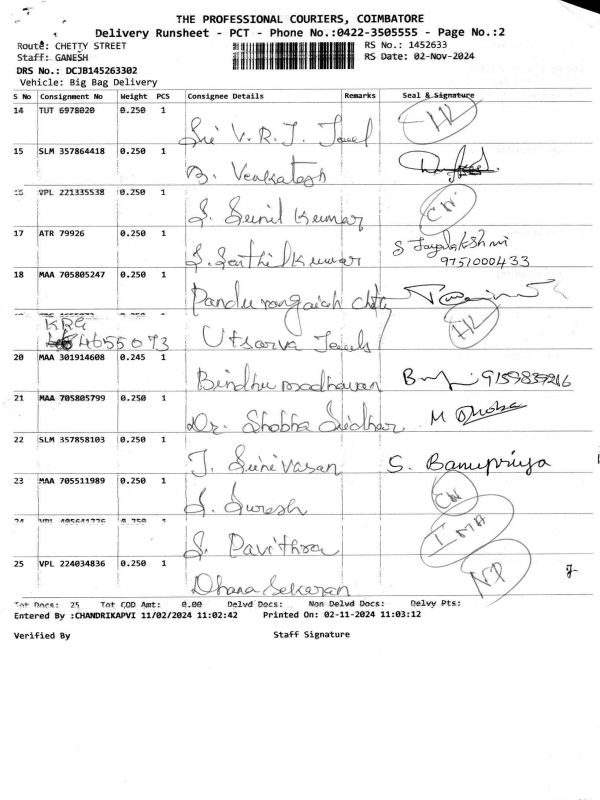 THE PROFESSIONAL COURIERS, COIMBATORE
Delivery Runsheet - PCT - Phone No.:0422-3505555 - Page No.:2
Route: CHETTY STREET RS No.: 1452633
Staff: GANESH RS Date: 02-Nov-2024
DRS No.: DCJB145263302
Vehicle: Big Bag Delivery
S No Consignment No Weight PCS Consignee Details Remarks Seal & Signature
14 TUT 6978020 0.250 1
Sri V. R. J. Jewel HL
15 SLM 357864418 0.250 1
B. Venkatesh
16 VPL 221335538 0.250 1
S. Sunil Kumar CN
17 ATR 79926 0.250 1
S. Senthil Kumar S Jayalakshmi
9751000433
18 MAA 705805247 0.250 1
Pandu rangaiah Chetty
KRG
4655073 Utsarva Jewels HL
20 MAA 301914608 0.245 1
Bindhu madhavan
21 MAA 705805799 0.250 1
Dr. Shobha Sridhar M
22 SLM 357858103 0.250 1
J. Sunivasan S. Banupriya
23 MAA 705511989 0.250 1
S. Suresh CN
24 0.250 1
S. Pavithra
25 VPL 224034836 0.250 1
Dhana Sekaran NP
Tot Docs: 25 Tot COD Amt: 0.00 Delvd Docs: Non Delvd Docs: Delvy Pts:
Entered By :CHANDRIKAPVI 11/02/2024 11:02:42 Printed On: 02-11-2024 11:03:12
Verified By Staff Signature